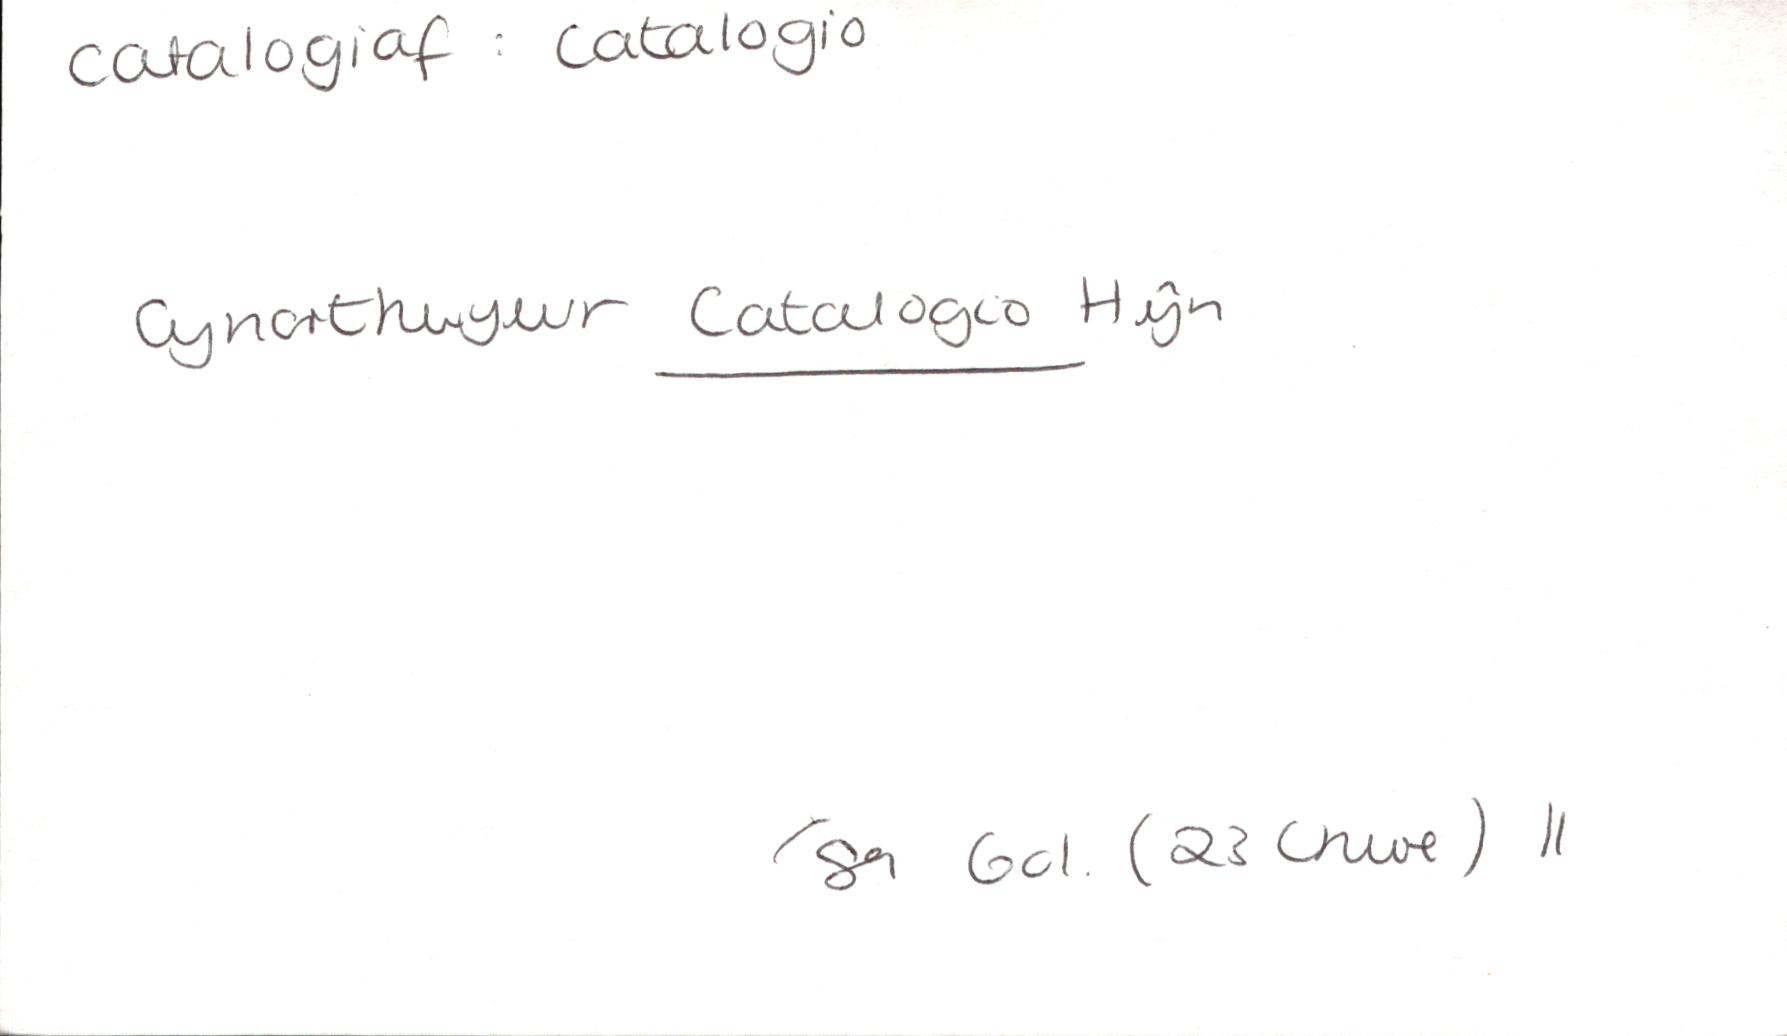 catalogiaf : catalogio
Cynorthwywr Catalogio Hŷn
'89 Gol. (23 Chwe) 11